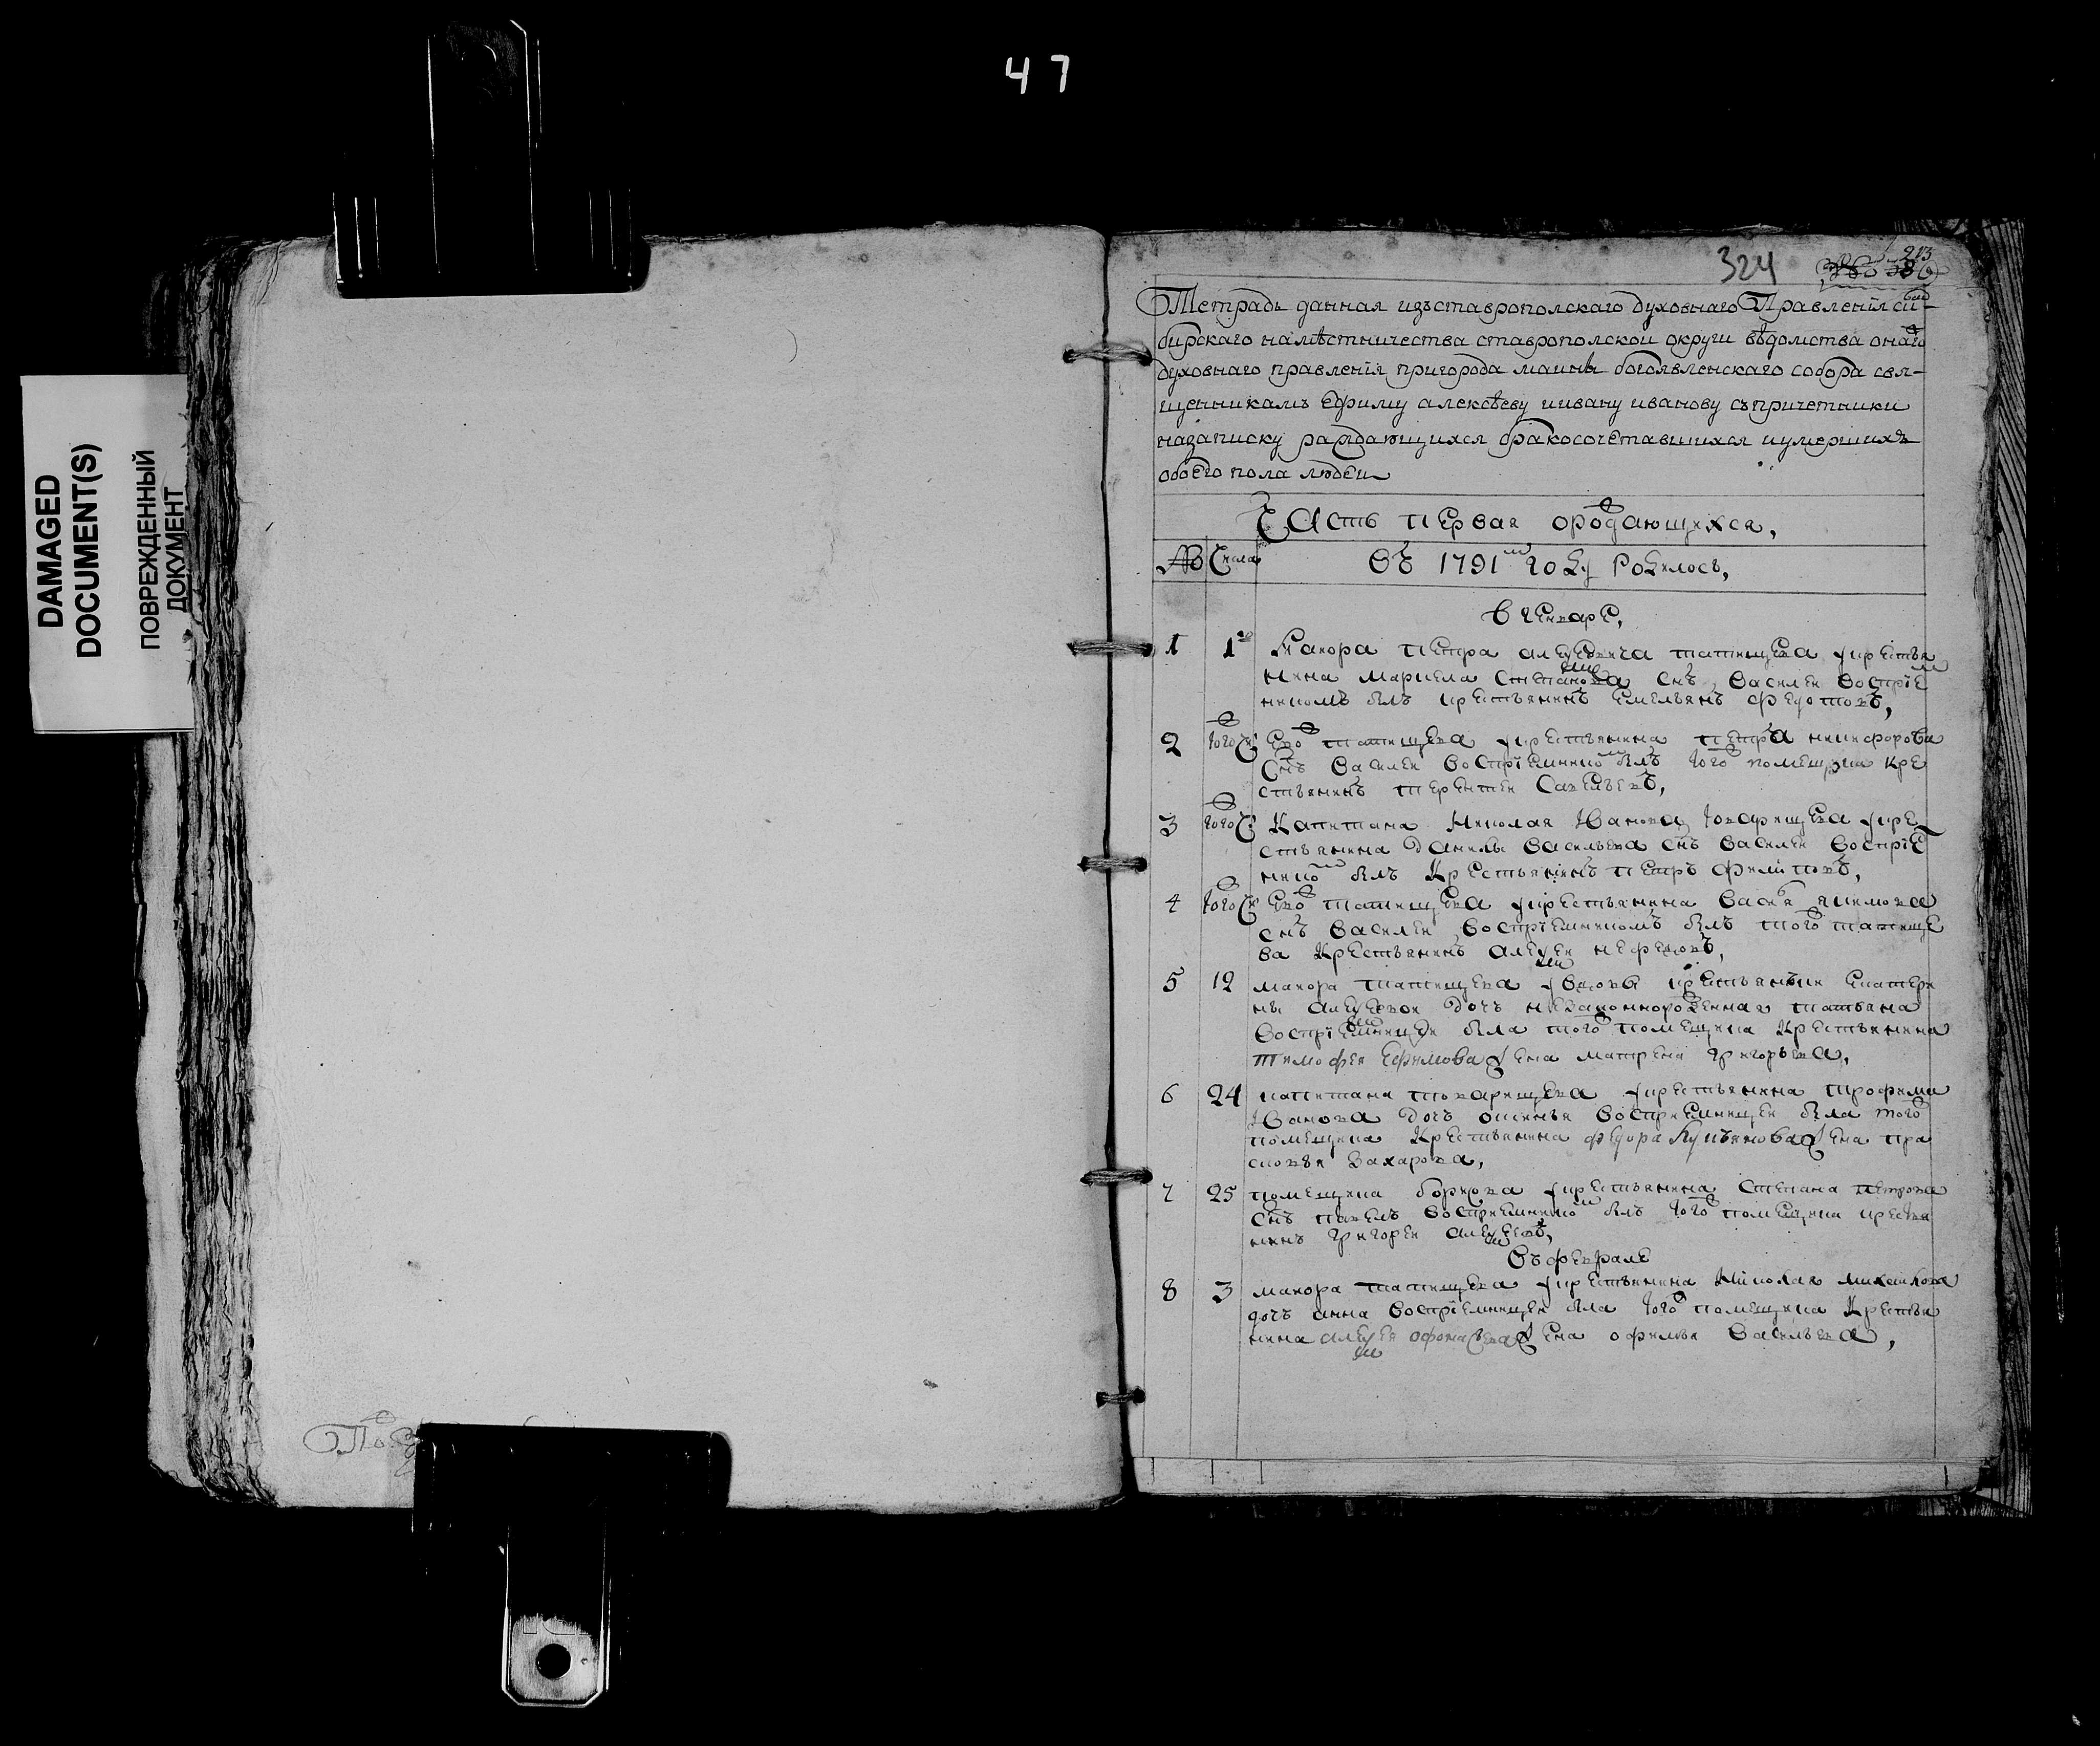 47
DAMAGED
DOCUMENT(S)
ПОВРЕЖДЕННЫЙ
ДОКУМЕНТ
324
213
Тетрадь данная изъставрополскаго духовнаго Правленїя сим-
бирскаго намѣстничества ставрополскои округи вѣдомства онаго
духовнаго правленїя пригорода маины богоявленскаго собора свя-
щенникамъ Ефиму алексѣеву иивану иванову съпричетники
назаписку раждающихся бракосочетавшихся иумершихъ
обоего пола людеи
Часть первая ораждающихся,
№ Числа Въ 1791м году Родилось,
В генваре,
1 1го Маиора петра алексеевича татищева крестья
нина Маркела Степанова снъ Василеи Восприе
никомъ былъ крестьянинъ Емельянъ Федотовъ,
2 того чи Ево татищева крестьянина петра никифорова
Снъ Василеи Восприемником былъ того помещика кре
стьянинъ терентеи Савельевъ,
3 того чи Капитана Николая Иванова товарищева кре
стьянина данилы Васильева снъ Василеи Восприе
ником былъ Крестьянинъ петръ филиповъ,
4 того чи Ево татищева крестьянина Васил якимова
снъ Василеи Восприемникомъ былъ того татище
ва Крестьянинъ алексеи нефедовъ,
5 12 маиора татищева Вдовы крестьянки Екатери
ны алексеевои дочь незаконнорожденная татьяна
Восприемницеи была того помещика Крестьянина
тимофея Ефимова жена матрена григорьева,
6 24 капитана товарищева крестьянина трофима
Иванова дочь Восприемницеи была того
помещика Крестьянина федора жена пра
сковья Захарова,
7 25 помещика крестьянина Степана петрова
Снъ павелъ Восприемником былъ того помещика крестья
нинъ григореи алексеевъ,
Въ феврале
8 3 маиора татищева крестьянина Николая михаилова
дочь анна Восприемницеи была того помещика Крестья
нина алексея жена офимья Васильева,